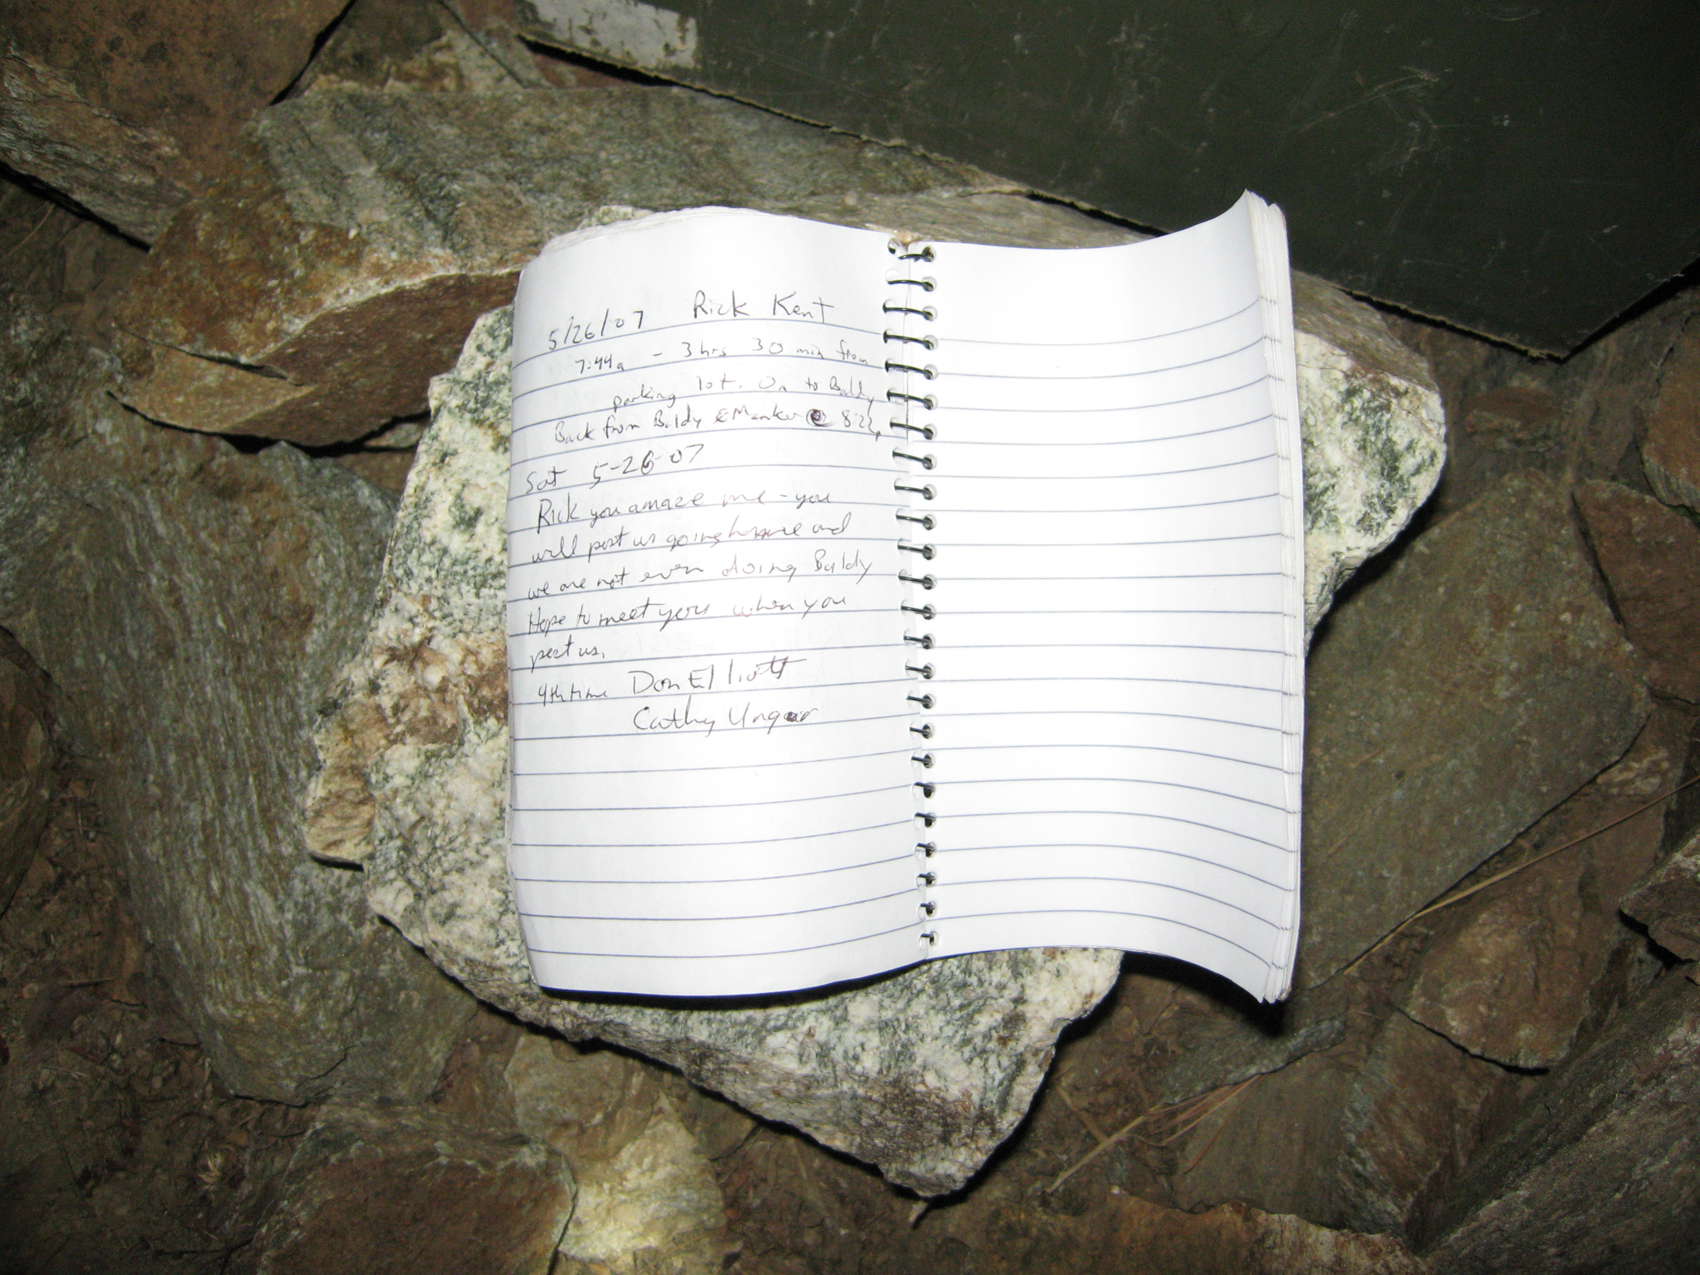 5/26/07 Rick Kent
7:44a - 3 hrs 30 min from
parking lot. On to Baldy
Back from Baldy & Manker @ 8:22p
Sat 5-26-07
Rick you amaze me - you
will past us going home and
we are not even doing Baldy
Hope to meet you when you
past us.
4th time Don Elliott
Cathy Ungar